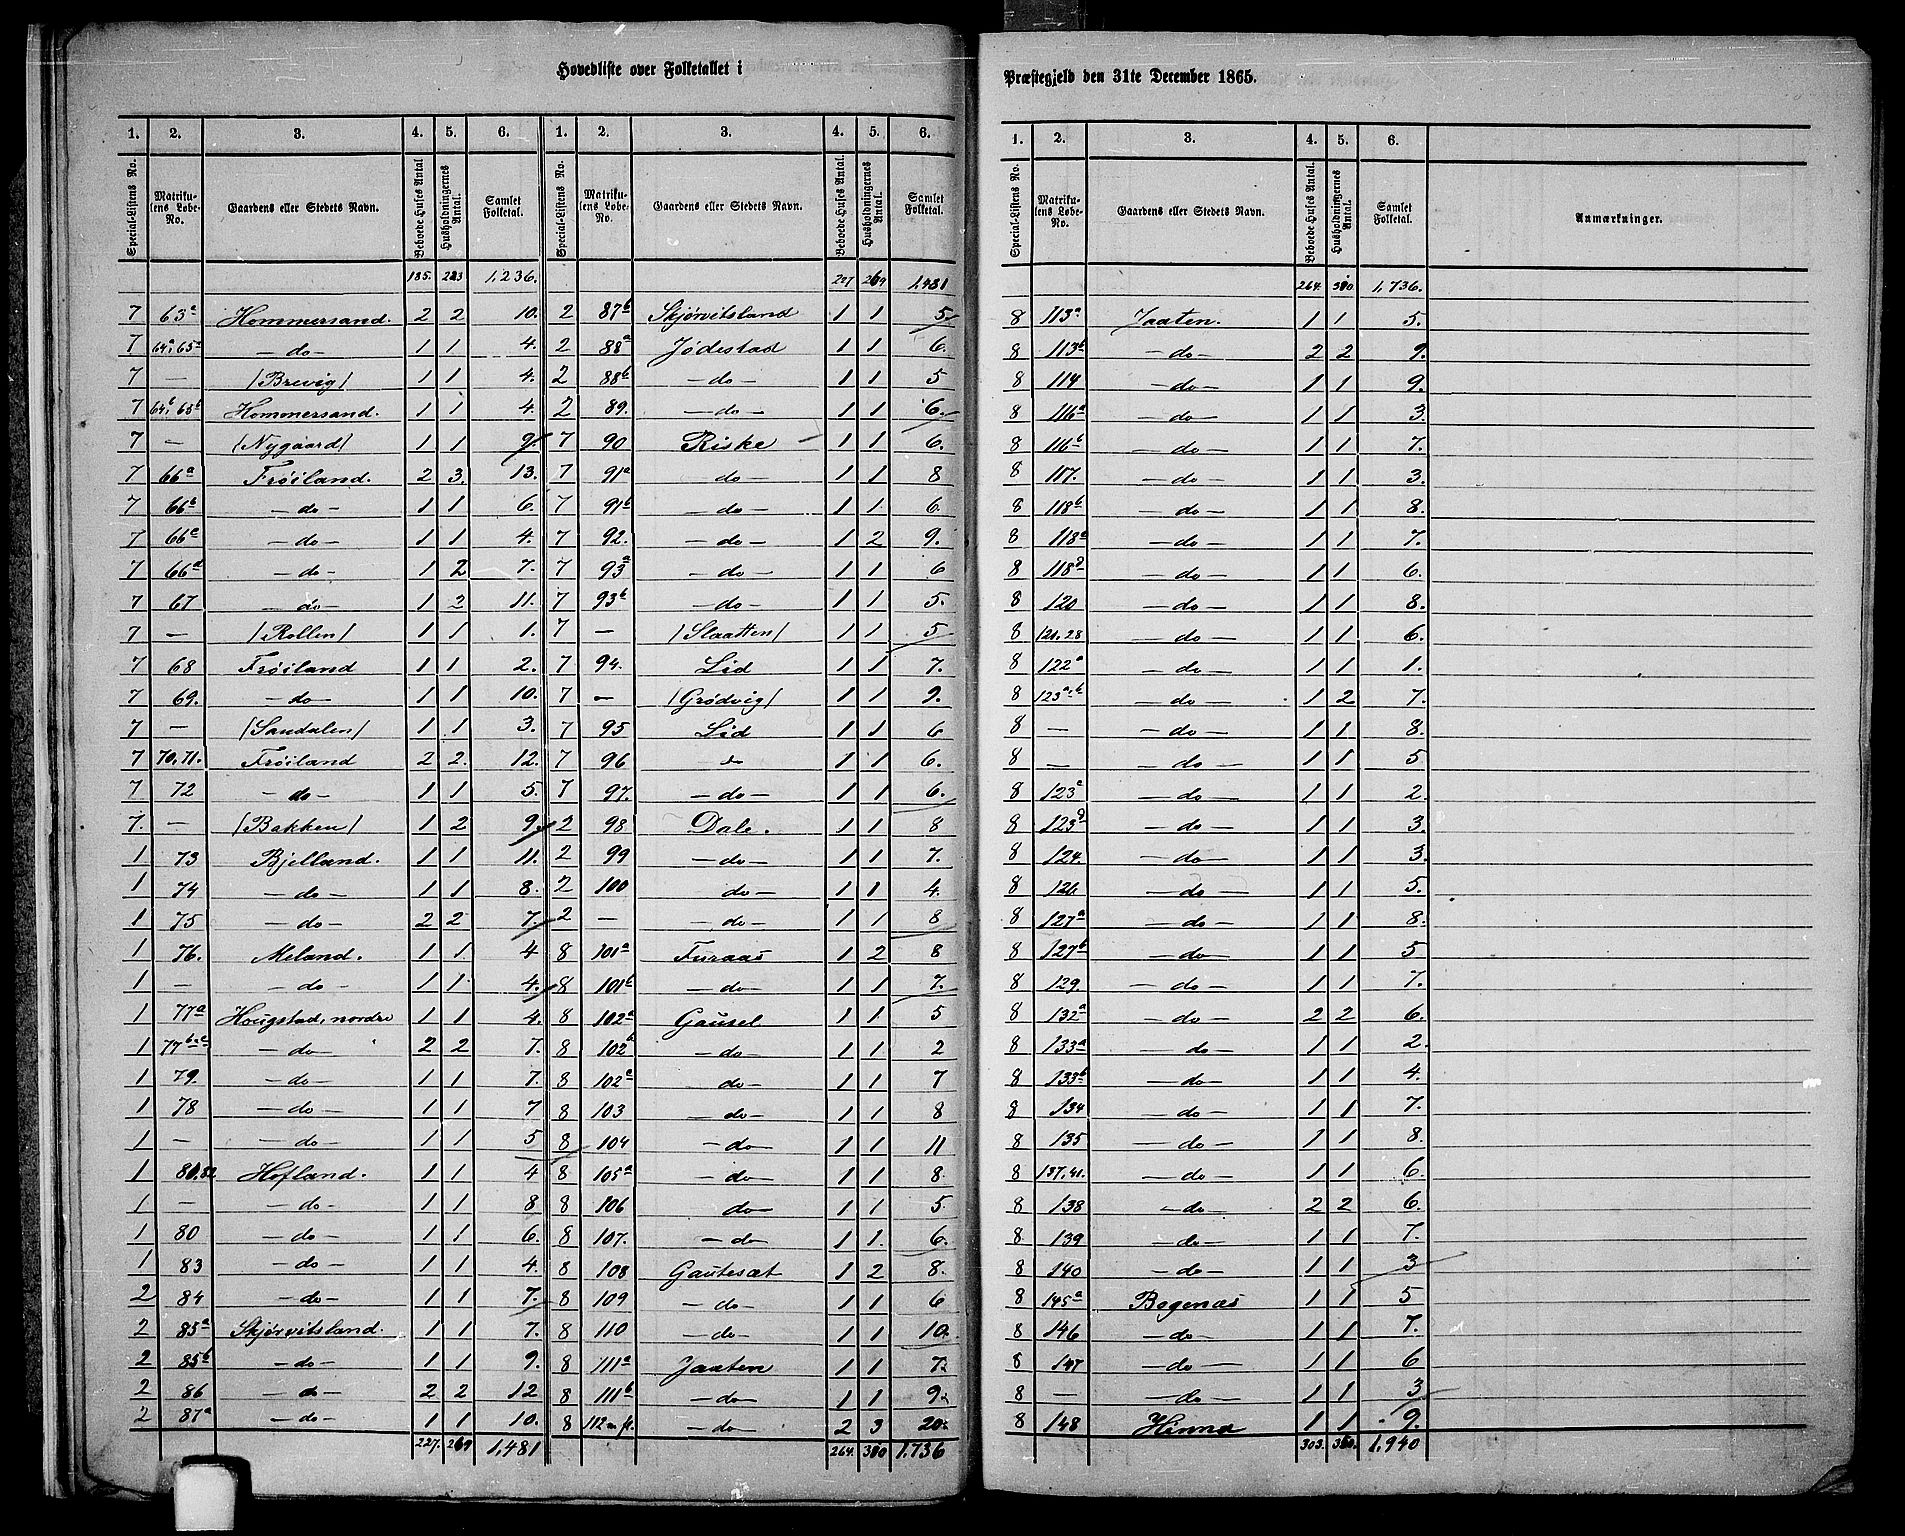 Hovedliste over Folketallet i
Præstegjeld den 31te December 1865.
1. 2. 3. 4. 5. 6.
Special-Listens No. Matrikulens Løbe-No. Gaardens eller Stedets Navn. Beboede Huses Antal Husholdningernes Antal. Samlet Folketal.
185. 223 1,236.
7 63a Hommersand. 2 2 10.
7 64a, 65a — do — 1 1 4.
7 — /Brevig/ 1 1 4.
7 64b, 65b Hommersand. 1 1 4.
7 — /Nygaard/ 1 1 9.
7 66a Frøiland. 2 3. 13.
7 66b — do — 1 1 6.
7 66a — do — 1 1 4.
7 66a — do — 1 2 7.
7 67 — do — 1 2 11.
7 — /Rollen/ 1 1 1.
7 68 Frøiland 1 1 2.
7 69. — do — 1 1 10.
7 — /Sandalen/ 1 1 3.
7 70, 71. Frøiland 2 2. 12.
7 72 — do — 1 1 5.
7. — /Bakken/ 1 2 9.
1 73 Bjelland. 1 1 11.
1 74 — do — 1 1 8.
1 75 — do — 2 2 7.
1 76. Meland. 1 1 4
1 — — do — 1 1 4.
1 77a Hougstad, nordre 1 1 4.
1 77b — do — 2 2 7.
1 79. — do — 1 1 7.
1 78 — do — 1 1 7
1 — — do — 1 1 5
1 81, 82 Hofland. 1 1 4
1 — — do — 1 1 8
1 80 — do — 1 1 6.
1 83 — do — 1 1 4.
2 84 — do — 1 1 7.
2 85a Skjørvitsland. 1 1 7.
2 85b — do — 1 1 9.
2 86 — do — 2 2 12
2 87a — do — 1 1 10.
227. 269 1,481
1. 2. 3. 4. 5. 6.
Special-Listens No. Matrikulens Løbe-No. Gaardens eller Stedets Navn. Beboede Huses Antal. Husholdningernes Antal. Samlet Folketal.
227 269 1,481
2 87b Skjørvitsland 1 1 5.
2 88a Jødestad 1 1 6.
2 88b — do — 1 1 5
2 89. — do — 1 1 6.
7 90 Riske 1 1 6.
7 91a — do — 1 1 8
7 91b — do — 1 1 6.
7 92. — do — 1 2 9.
7 93a — do — 1 1 6
7 93b — do — 1 1 5.
7 — /Slaatten/ 1 1 5
7 94. Lid 1 1 7.
7 — /Grødvig/ 1 1 9.
7 95 Lid 1 1 6
7 96 do 1 1 6.
7 97. — do — 1 1 6.
2 98 Dale. 1 1 8
2 99 — do — 1 1 7.
2 100 — do — 1 1 4.
2 — — do — 1 1 8
8 101a Furaas 1 2 8
8 101b — do — 1 1 7.
8 102a Gausel 1 1 5
8 102b — do — 1 1 2
8 102c — do — 1 1 7
8 103 — do — 1 1 8
8 104 — do — 1 1 11
8 105a — do — 1 1 8.
8 106 do — 1 1 5.
8 107. — do — 1 1. 6.
8 108 Gautesæt 1 2 8.
8 109 — do — 1 1 6
8 110 — do — 1 1 10.
8 111a Jaaten 1 1 7.
8 111b — do — 1 1 9.
8 112 m. fl. — do — 2 3 20.
264. 310 1,736
1. 2. 3. 4. 5. 6.
Special-Listens No. Matrikulens Løbe-No. Gaardens eller Stedets Navn. Beboede Huses Antal. Husholdningernes Antal. Samlet Folketal. Anmærkninger.
264. 310 1,736.
8 113a Jaaten. 1 1 5.
8 113b — do — 2 2 9.
8 114 — do — 1 1 9.
8 116a — do — 1 1 3.
8 116b — do — 1 1 7.
8 117. — do — 1 1 3.
8 118b — do — 1 1 8.
8 118a — do — 1 1 7.
8 118 — do — 1 1 6.
8 120 — do — 1 1 8.
8 121. 28 — do — 1 1 6.
8 122a — do — 1 1 1.
8 123a-b — do — 1 2 7.
8 — — do — 1 1 8.
8 — — do — 1 1 5
8 123 — do — 1 1 2.
8 123 — do — 1 1 3.
8 124. — do — 1 1 3.
8 126 — do — 1 1 5.
8 127a — do — 1 1 8.
8 127b — do — 1 1 5
8 129. — do — 1 1 7.
8 132a — do — 2 2 6.
8 133a — do — 1 1 2.
8 133b — do — 1 1 4.
8 134 — do — 1 1 7.
8 135 — do — 1 1 8.
8 137, 41. — do — 1 1 6.
8 138 — do — 2 2 6.
8 139 — do — 1 1 7.
8 140 — do — 1 1 3
8 145a Bogenæs 1 1 5
8 146 — do — 1 1 7.
8 147 — do — 1 1 6
8 — — do — 1 1 3
8 148 Hinna 1 1 9.
303. 350. 1,940